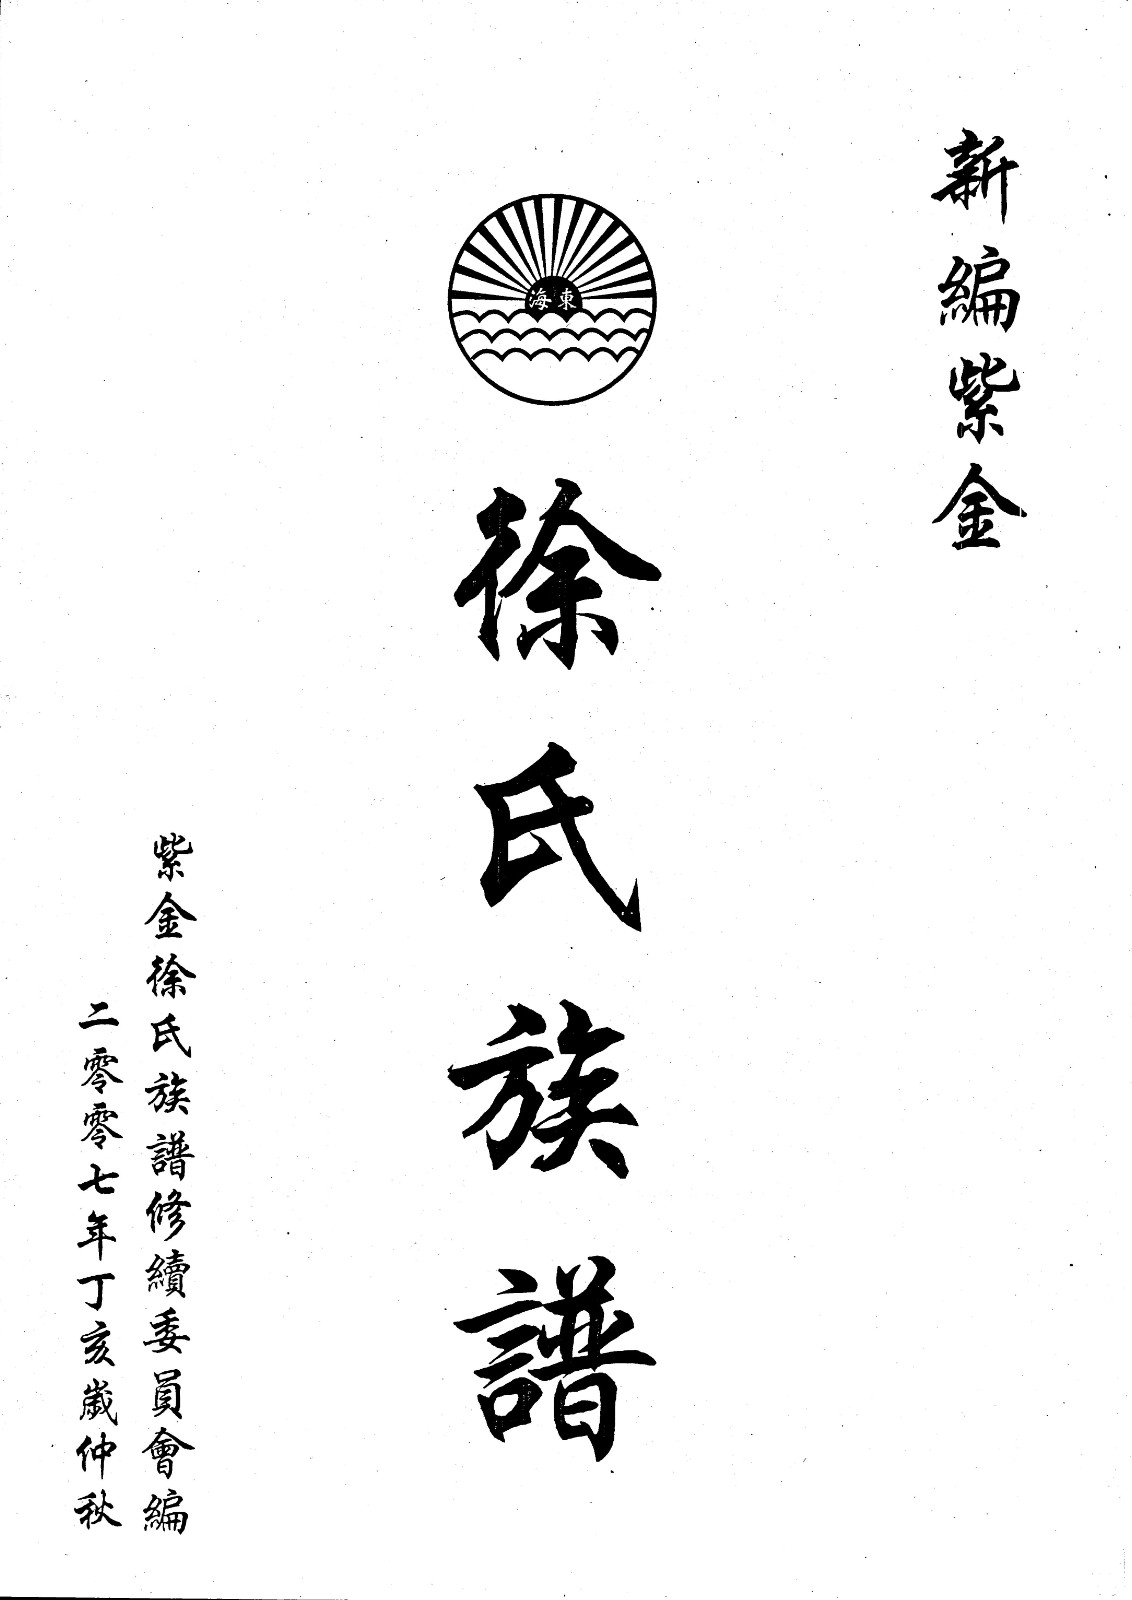 新編紫金
東海
徐氏族譜
紫金徐氏族譜修續委員會編
二零零七年丁亥歲仲秋